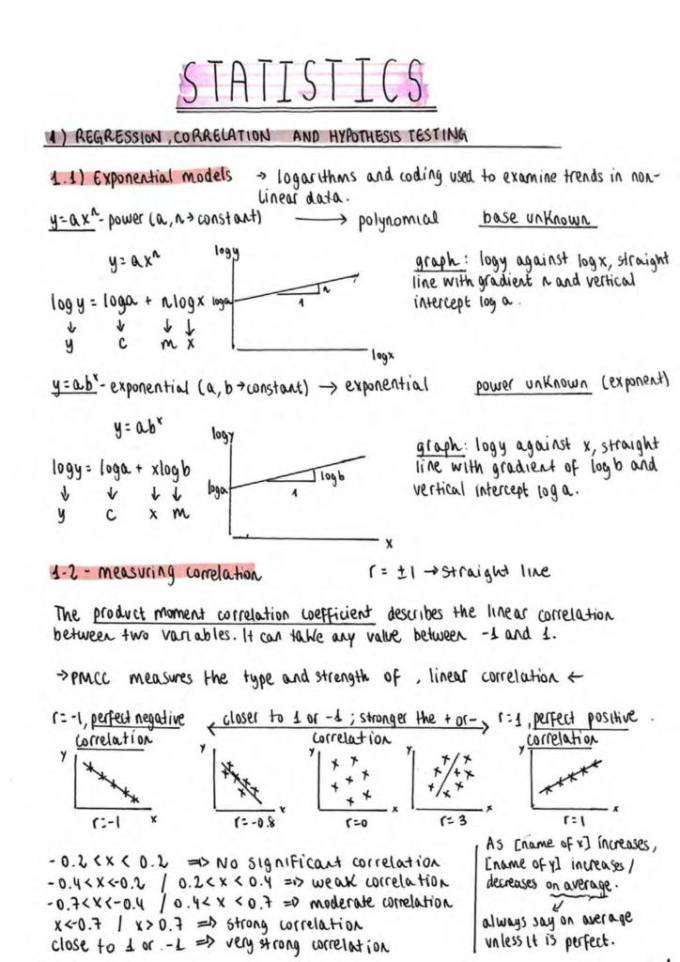 STATISTICS
1) REGRESSION, CORRELATION AND HYPOTHESIS TESTING
1.1) Exponential models → logarithms and coding used to examine trends in non-
linear data.
y=axⁿ - power (a, n → constant) → polynomial base unknown
y=axⁿ
logy = loga + nlogx
↓ ↓ ↓ ↓
y c m x
logy
loga
n
1
logx
graph: logy against logx, straight
line with gradient n and vertical
intercept log a.
y=abˣ - exponential (a, b → constant) → exponential power unknown (exponent)
y=abˣ
logy = loga + xlogb
↓ ↓ ↓ ↓
y c x m
logy
loga
logb
1
x
graph: logy against x, straight
line with gradient of logb and
vertical intercept log a.
1-2 - measuring correlation r = ±1 → straight line
The product moment correlation coefficient describes the linear correlation
between two variables. It can take any value between -1 and 1.
→ PMCC measures the type and strength of , linear correlation ←
r=-1, perfect negative ← closer to 1 or -1 ; stronger the + or- → r=1, perfect positive .
correlation correlation correlation
y y y y y
x x x x x
r=-1 r=-0.8 r=0 r=3 r=1
-0.2 < x < 0.2 => No significant correlation
-0.4 < x <-0.2 / 0.2 < x < 0.4 => weak correlation
-0.7 < x <-0.4 / 0.4 < x < 0.7 => moderate correlation
x <-0.7 / x > 0.7 => strong correlation
close to 1 or -1 => very strong correlation
As [name of x] increases,
[name of y] increases /
decreases on average.
always say on average
unless it is perfect.